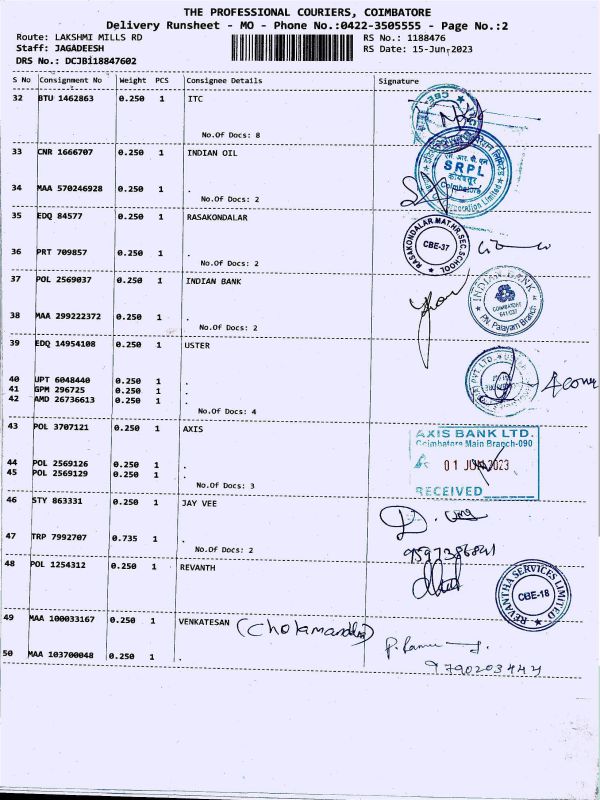 THE PROFESSIONAL COURIERS, COIMBATORE
Delivery Runsheet - MO - Phone No.:0422-3505555 - Page No.:2
Route: LAKSHMI MILLS RD RS No.: 1188476
Staff: JAGADEESH RS Date: 15-Jun-2023
DRS No.: DCJB118847602
S No Consignment No Weight PCS Consignee Details Signature
32 BTU 1462863 0.250 1 ITC
No.Of Docs: 8
33 CNR 1666707 0.250 1 INDIAN OIL
SRPL
Coimbatore
34 MAA 570246928 0.250 1 .
No.Of Docs: 2
35 EDQ 84577 0.250 1 RASAKONDALAR
RASAKONDALAR.MAT.HR.SEC.SCHOOL
CBE-37
36 PRT 709857 0.250 1 .
No.Of Docs: 2
37 POL 2569037 0.250 1 INDIAN BANK
INDIAN BANK
COIMBATORE
641037
PN Palayam Branch
38 MAA 299222372 0.250 1 .
No.Of Docs: 2
39 EDQ 14954108 0.250 1 USTER
40 UPT 6048440 0.250 1 .
41 GPM 296725 0.250 1 .
42 AMD 26736613 0.250 1 .
No.Of Docs: 4
43 POL 3707121 0.250 1 AXIS
AXIS BANK LTD.
Coimbatore Main Branch-090
01 JUN 2023
RECEIVED
44 POL 2569126 0.250 1 .
45 POL 2569129 0.250 1 .
No.Of Docs: 3
46 STY 863331 0.250 1 JAY VEE
47 TRP 7992707 0.735 1 .
No.Of Docs: 2
9597386841
48 POL 1254312 0.250 1 REVANTH
REVANTHA SERVICES LIMITED
CBE-18
49 MAA 100033167 0.250 1 VENKATESAN
50 MAA 103700048 0.250 1 .
9790203444